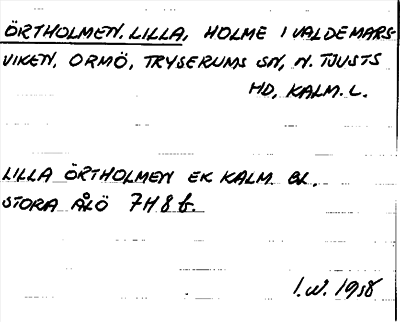 ÖRTHOLMEN, LILLA, HOLME I VALDEMARS-
VIKEN, ORMÖ, TRYSERUMS SN, N. TJUSTS
HD, KALM. L.
LILLA ÖRTHOLMEN EK KALM. BL.
STORA ÅLÖ 7H8f.
I.W. 1958